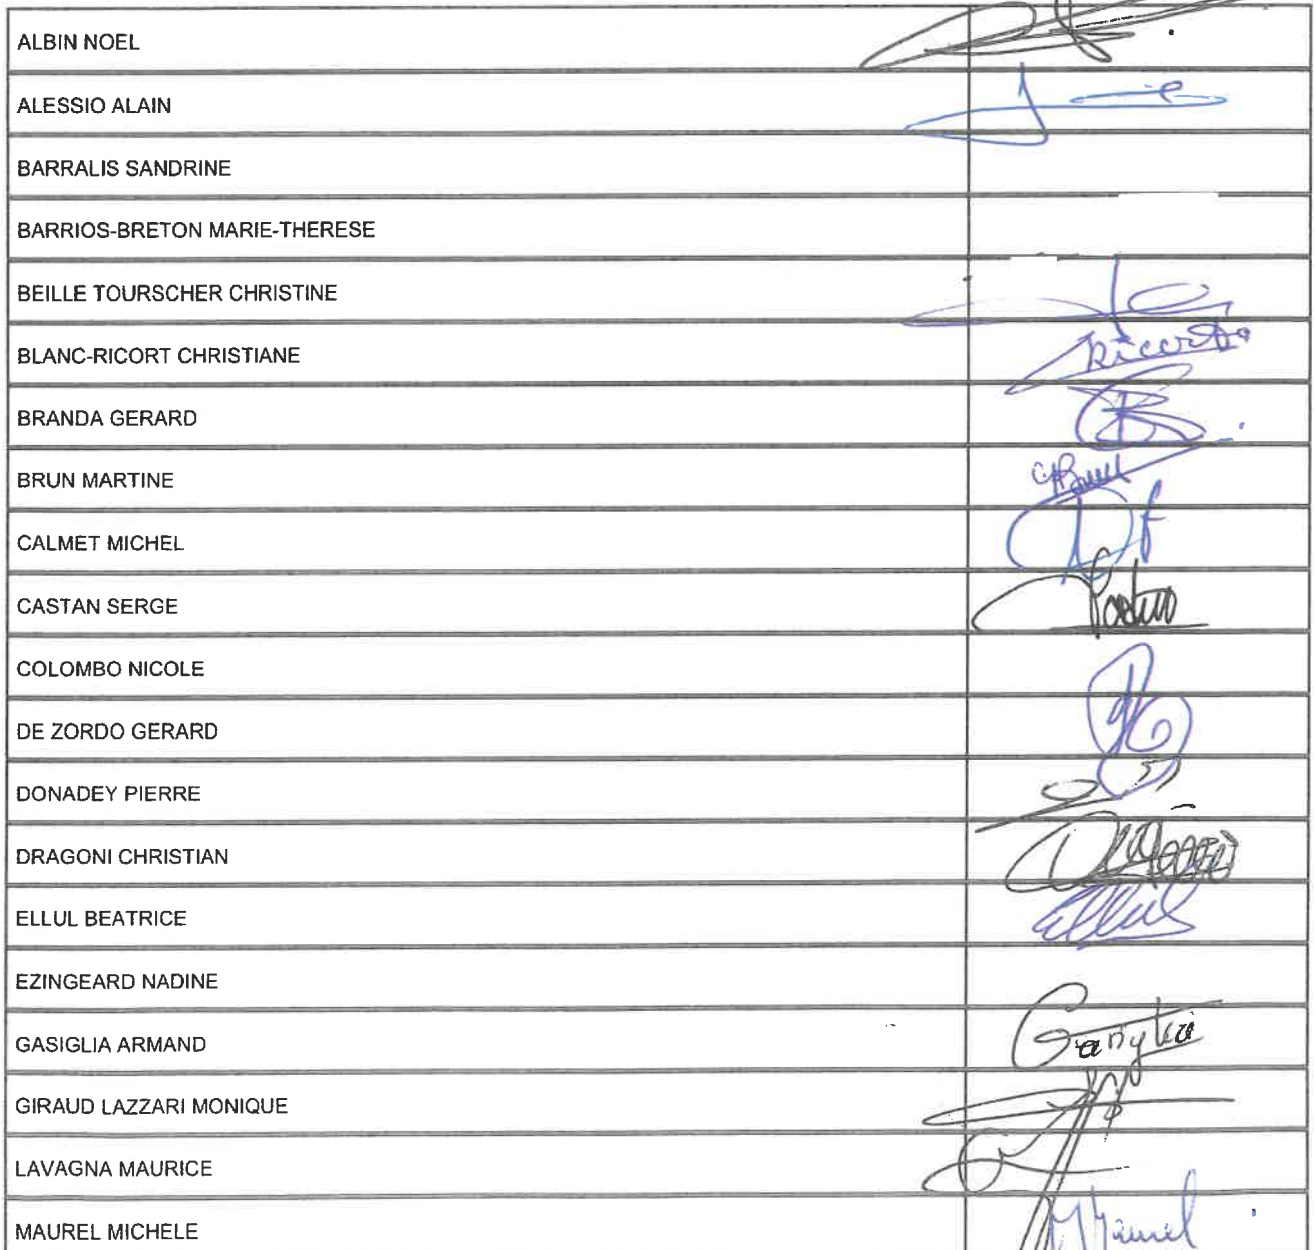 ALBIN NOEL
ALESSIO ALAIN
BARRALIS SANDRINE
BARRIOS-BRETON MARIE-THERESE
BEILLE TOURSCHER CHRISTINE
BLANC-RICORT CHRISTIANE
Ricort
BRANDA GERARD
BRUN MARTINE
CALMET MICHEL
CASTAN SERGE
COLOMBO NICOLE
DE ZORDO GERARD
DONADEY PIERRE
DRAGONI CHRISTIAN
ELLUL BEATRICE
Ellul
EZINGEARD NADINE
GASIGLIA ARMAND
GIRAUD LAZZARI MONIQUE
LAVAGNA MAURICE
MAUREL MICHELE